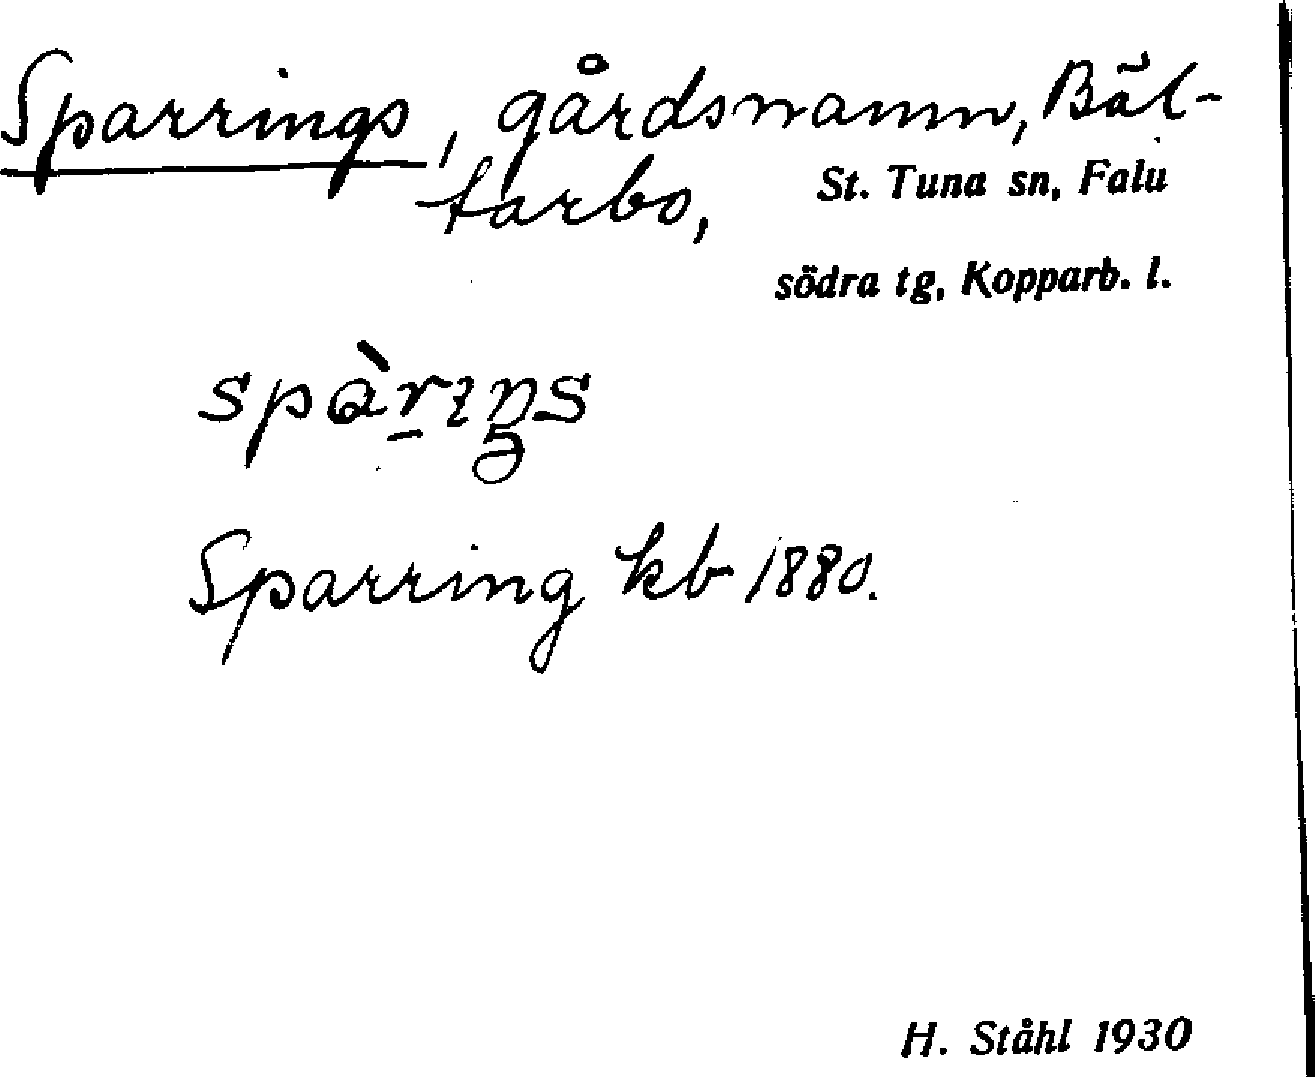 Sparrings, gårdsnamn, Bäl-
tarbo,
St. Tuna sn, Falu
södra tg, Kopparb. l.
spàr̠ıŋs
Sparring kb 1880.
H. Ståhl 1930